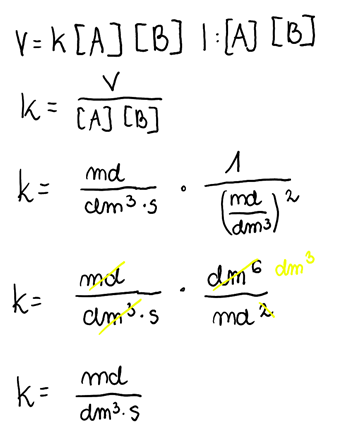 V = k [A] [B] | : [A] [B]
k = V / [A] [B]
k = md / dm³·s · 1 / (md / dm³)²
k = md / dm³·s · dm⁶ / md² dm³
k = md / dm³·s